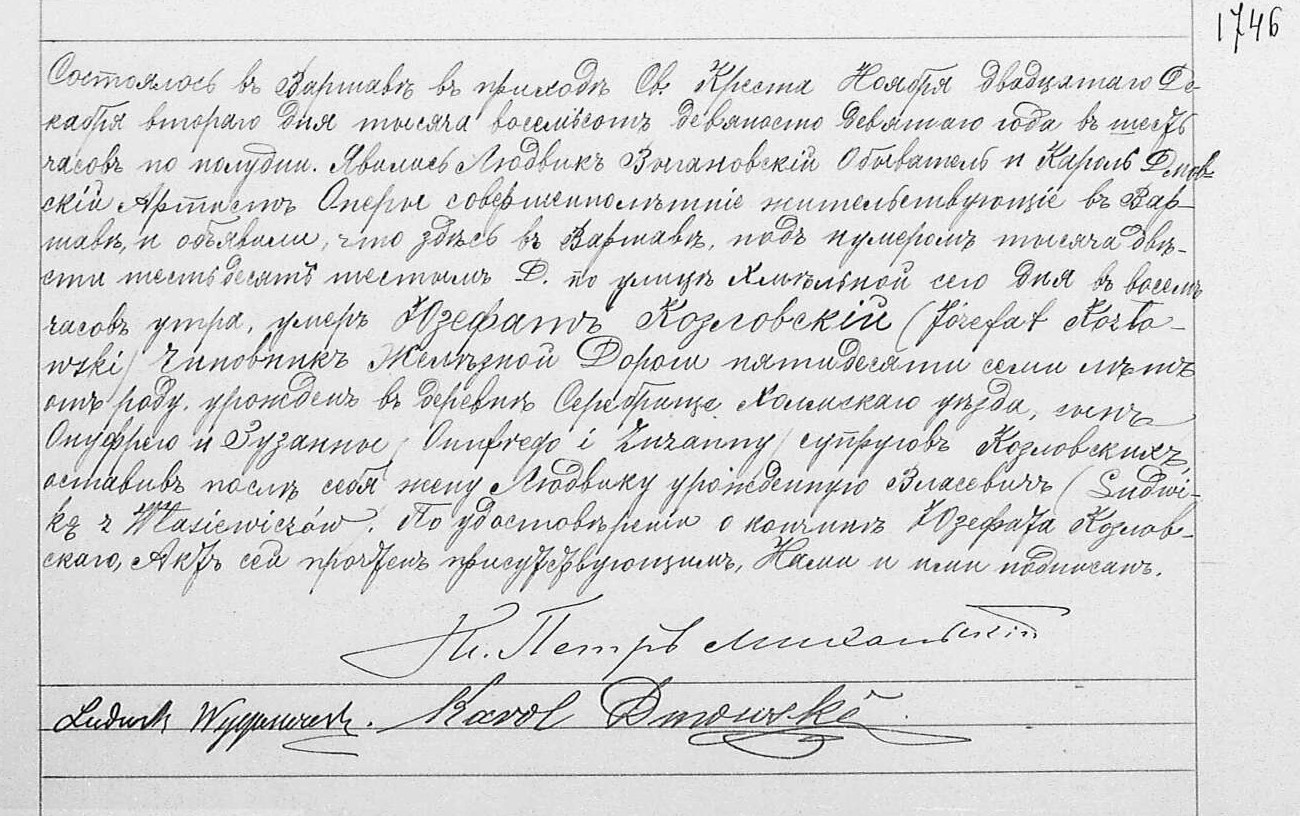 1746
Состоялось въ Варшавѣ въ приходѣ Св. Креста Ноября двадцатаго Де-
кабря втораго дня тысяча восемьсотъ девяносто девятаго года въ шесть
часовъ по полудни. Явились Людвикъ Обыватель и Кароль Дмов-
скій Артистъ Оперы совершеннолѣтніе жительствующіе въ Вар-
шавѣ, и объявили, что здѣсь въ Варшавѣ, подъ нумеромъ тысяча двѣ-
сти шестьдесятъ шестымъ Д. по улицѣ Хмѣльной сего дня въ восемь
часовъ утра, умеръ Юзефатъ Козловскій (Józefat Kozło-
wski) Чиновникъ Желѣзной Дороги пятидесяти семи лѣтъ
отъ роду, урожденъ въ деревнѣ Серебрище Холмскаго уѣзда, сынъ
Онуфрего и Зузанны (Onufrego i Zuzanny) супруговъ Козловскихъ,
оставивъ послѣ себя жену Людвику урожденную Власевичъ (Ludwi-
kę z Własiewiczów). По удостовѣреніи о кончинѣ Юзефата Козлов-
скаго, Актъ сей прочтенъ присутствующимъ, Нами и ими подписанъ.
Кс. Петръ
Ludwik Karol Dmowski